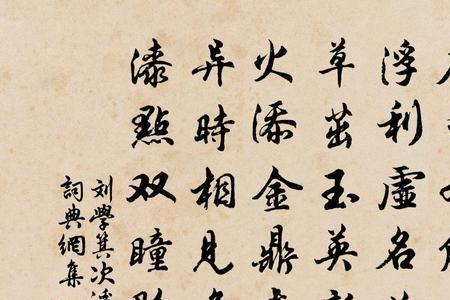 浮利虚名
草茁玉英
火添金鼎
异時相见
漆點双瞳
刘學箕次
詞典網集